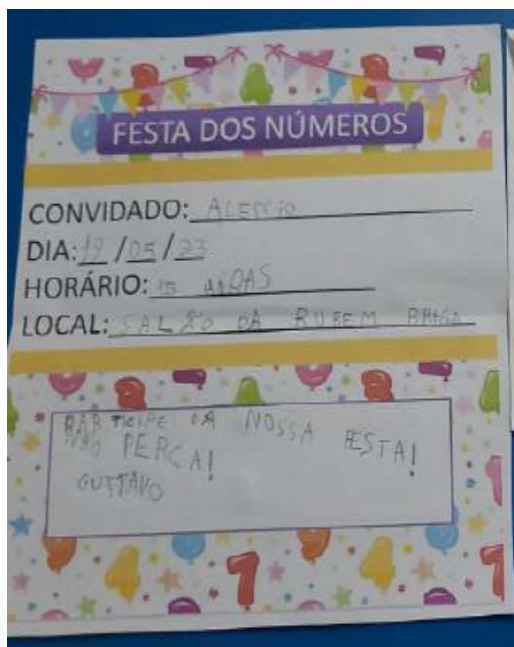 FESTA DOS NÚMEROS
CONVIDADO: ALESSIO
DIA: 19 / 05 / 23
HORÁRIO: 15
LOCAL: SALÃO DA RUBEM BRAGA
PARTICIPE DA NOSSA FESTA!
NÃO PERCA!
GUSTAVO